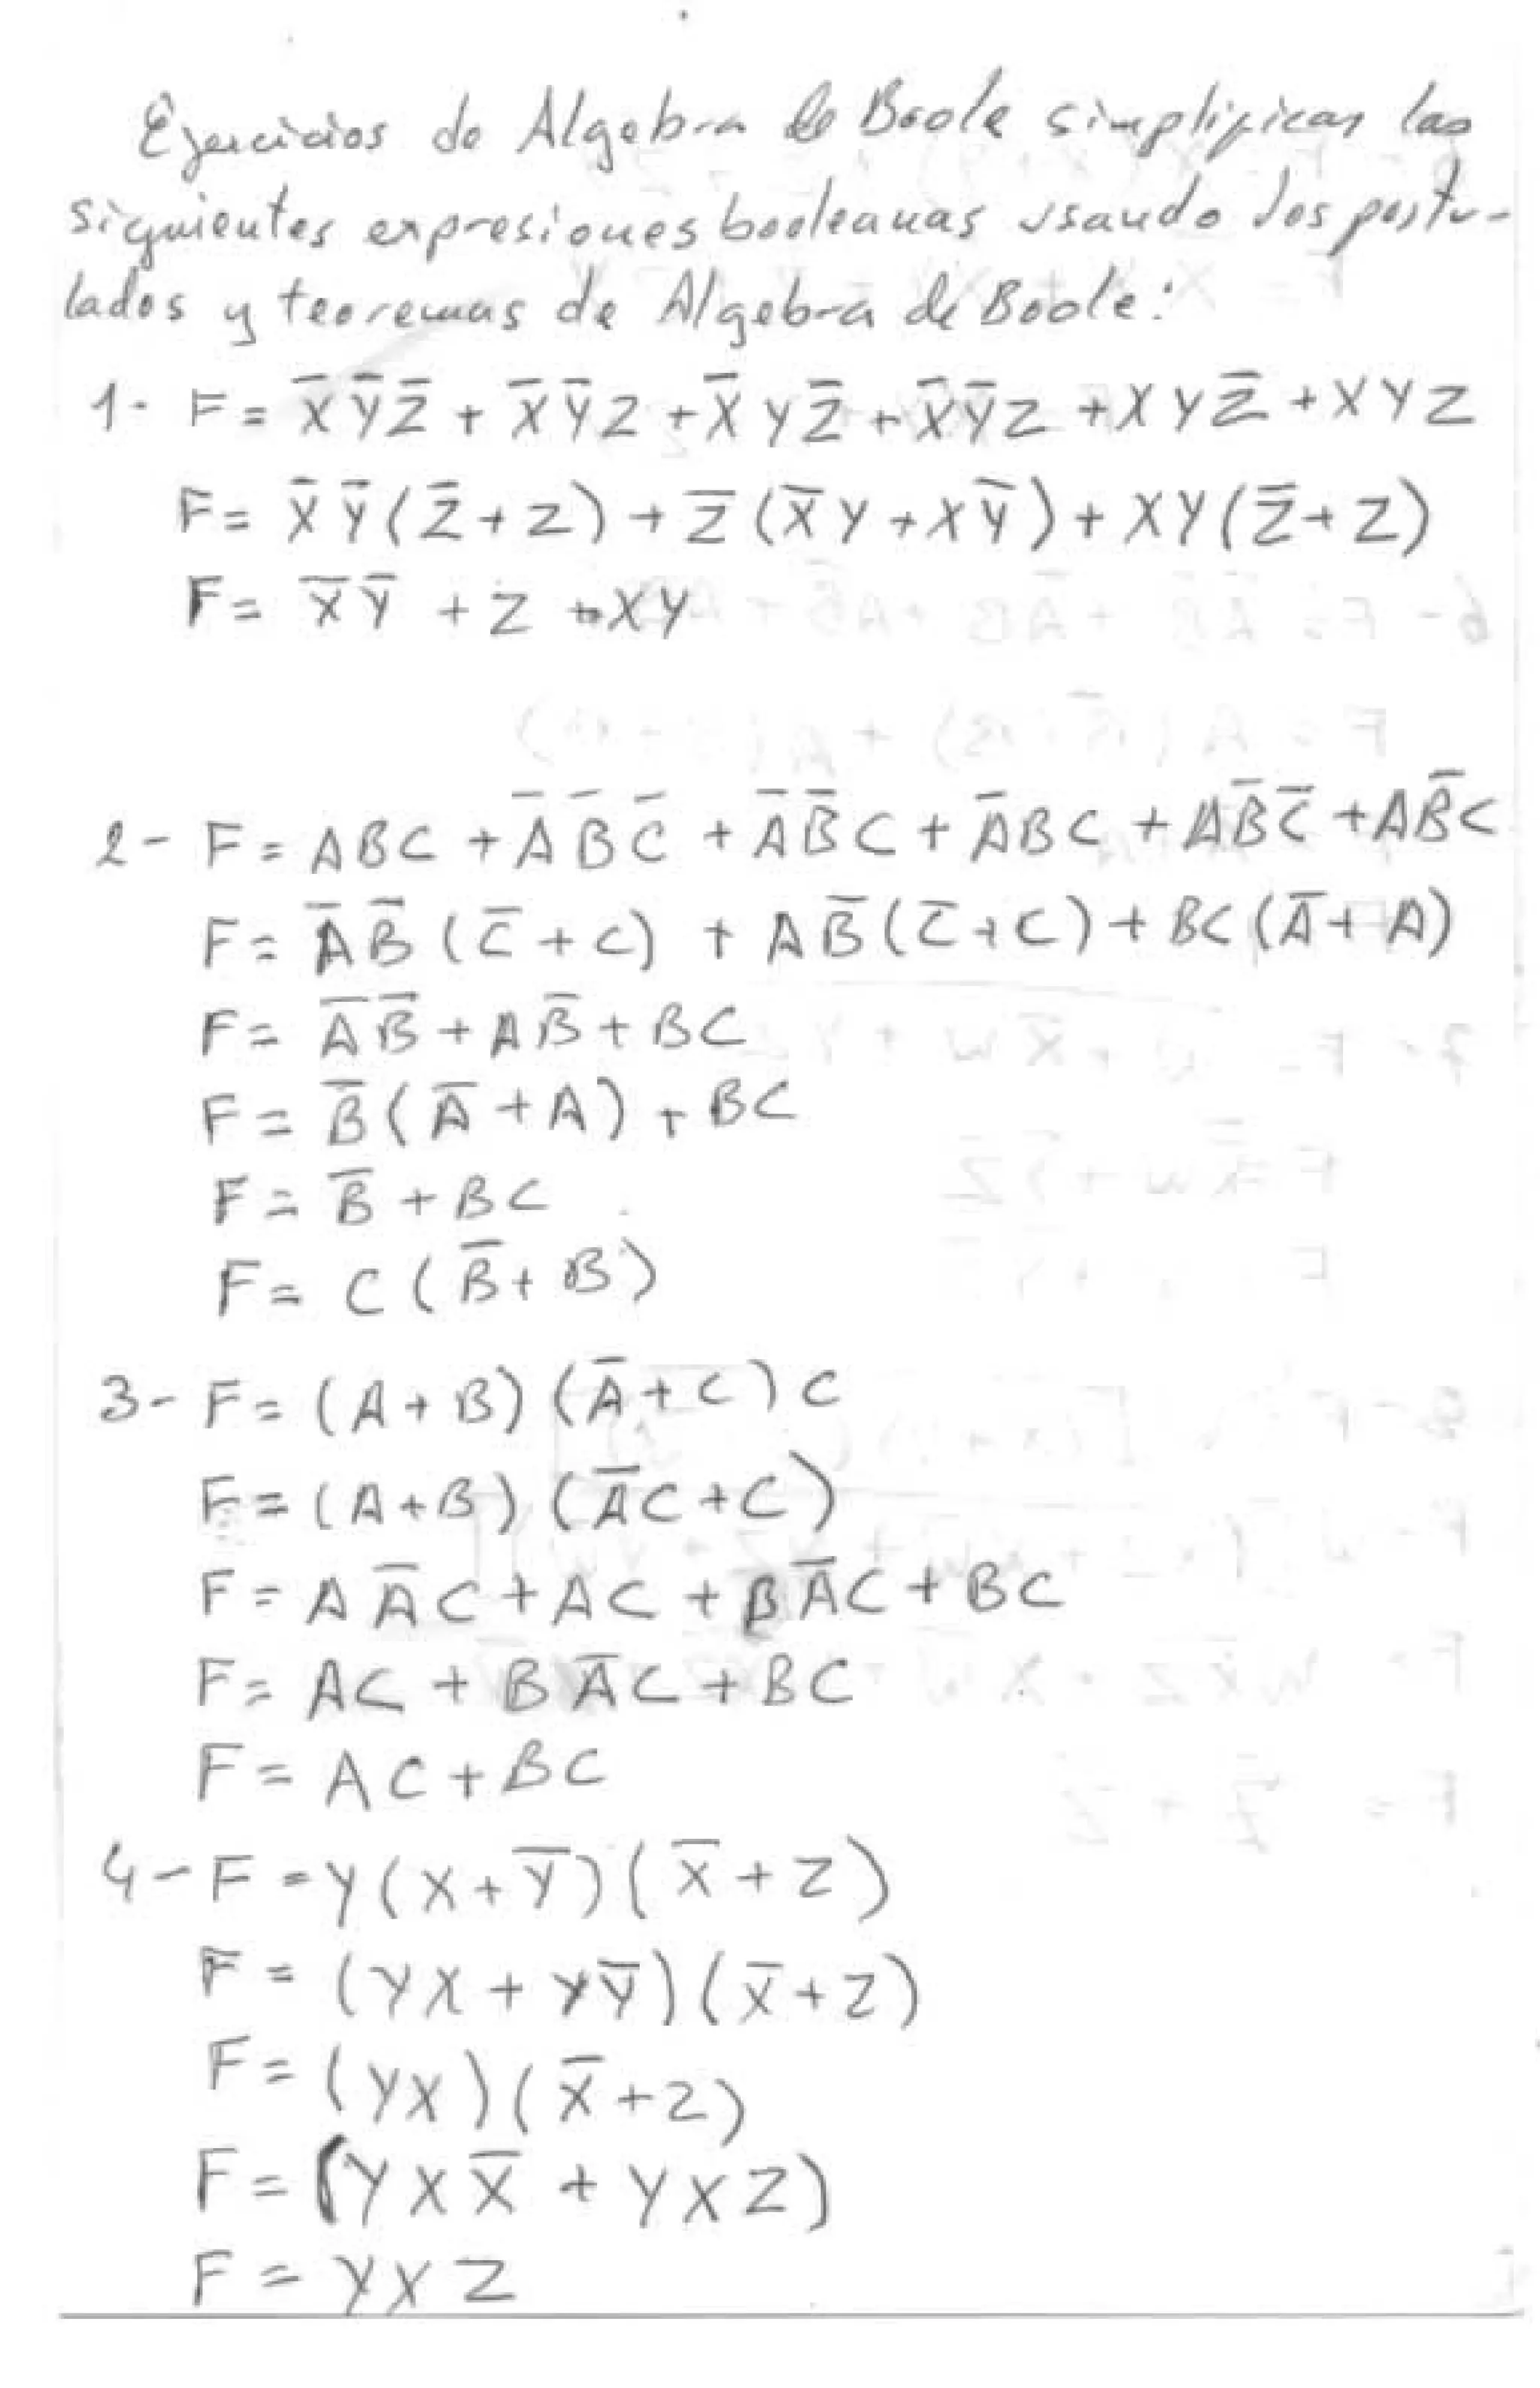 Ejercicios de Algebra de Boole simplificar las
siguientes expresiones booleanas usando los postu-
lados y teoremas de Algebra de Boole:
1- F = X̅ Y̅ Z̅ + X̅ Y̅ Z + X̅ Y Z̅ + X̅ Y̅ Z + X Y Z̅ + X Y Z
F = X̅ Y̅ (Z̅ + Z) + Z̅ (X̅ Y + X Y̅) + XY (Z̅ + Z)
F = X̅ Y̅ + Z + XY
2- F = ABC + A̅ B̅ C̅ + A̅ B̅ C + A̅ B C + A B̅ C̅ + A B̅ C
F = A̅ B̅ (C̅ + C) + A B̅ (C̅ + C) + BC (A̅ + A)
F = A̅ B̅ + A B̅ + BC
F = B̅ (A̅ + A) + BC
F = B̅ + BC
F = C (B̅ + B)
3- F = (A + B) (A̅ + C) C
F = (A + B) (A̅ C + C)
F = A A̅ C + AC + B A̅ C + BC
F = AC + B A̅ C + BC
F = AC + BC
4- F = Y (X + Y̅) (X̅ + Z)
F = (YX + Y Y̅) (X̅ + Z)
F = (YX) (X̅ + Z)
F = (Y X X̅ + Y X Z)
F = Y X Z